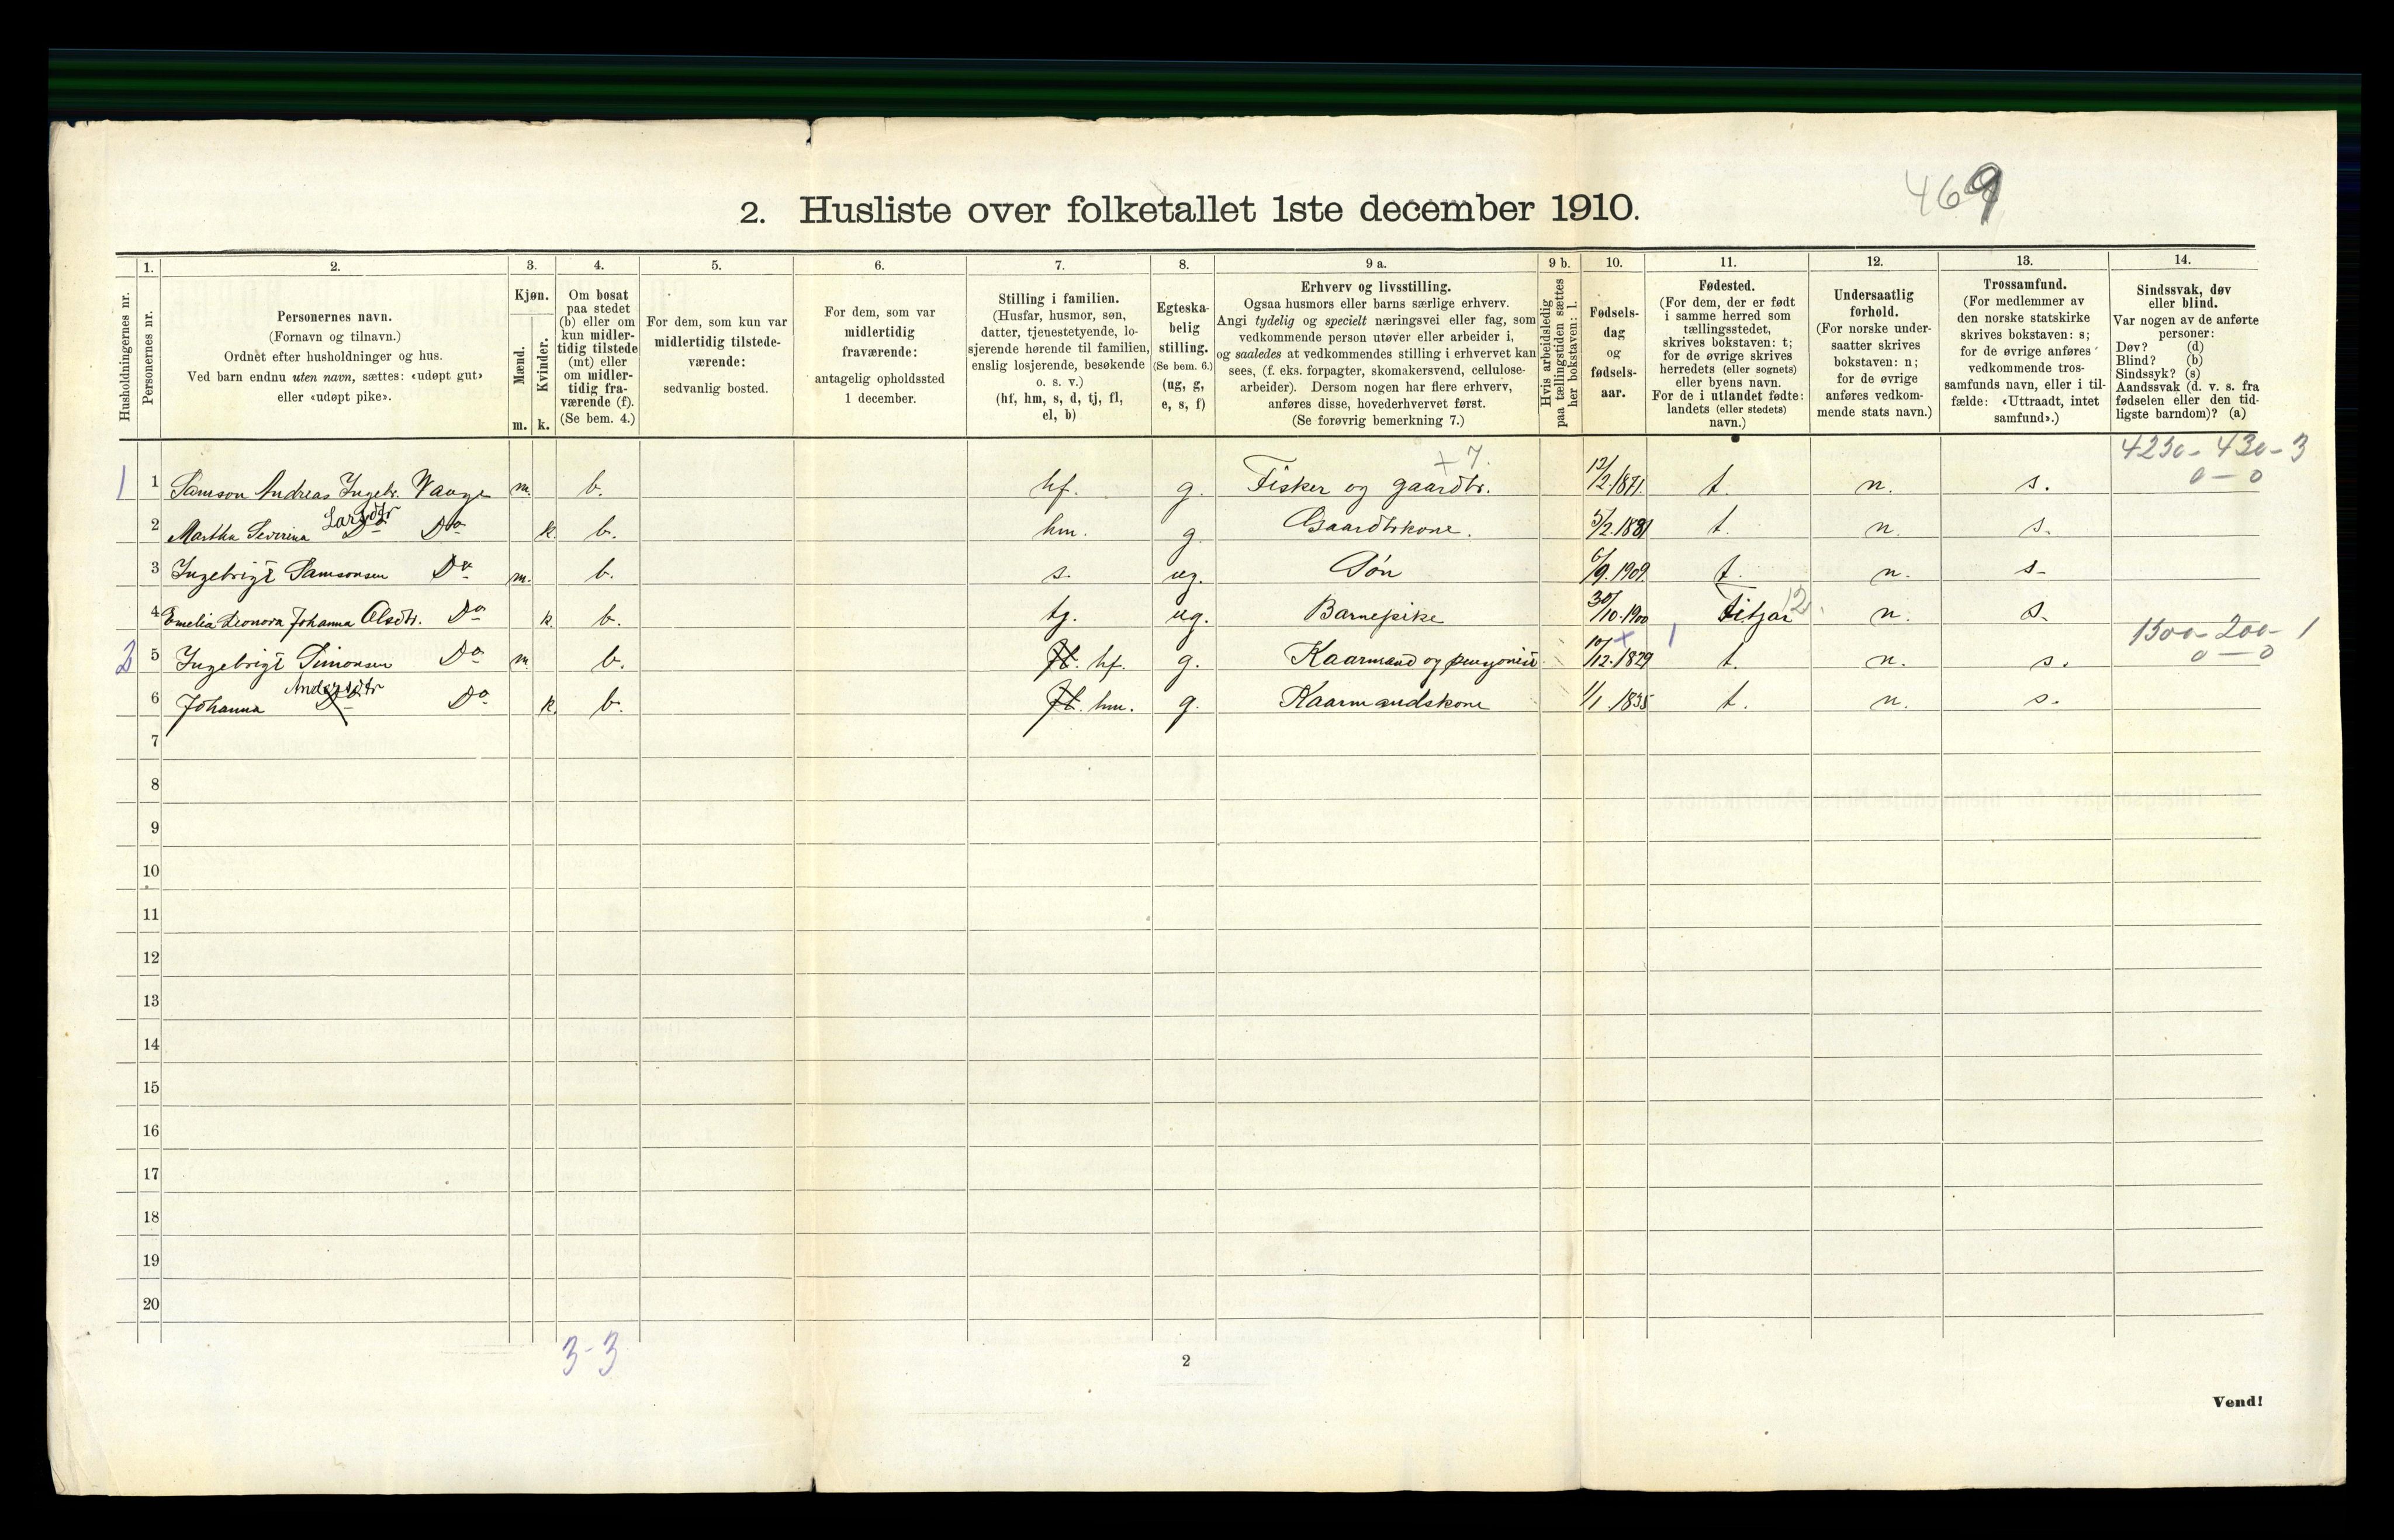 469
2. Husliste over folketallet 1ste december 1910.
Husholdningernes nr.
1.
Personernes nr.
2.
Personernes navn.
(Fornavn og tilnavn.)
Ordnet efter husholdninger og hus.
Ved barn endnu uten navn, sættes: «udøpt gut»
eller «udøpt pike».
3.
Kjøn.
Mænd.
Kvinder.
m. k.
4.
Om bosat
paa stedet
(b) eller om
kun midler-
tidig tilstede
(mt) eller
om midler-
tidig fra-
værende (f).
(Se bem. 4.)
5.
For dem, som kun var
midlertidig tilstede-
værende:
sedvanlig bosted.
6.
For dem, som var
midlertidig
fraværende:
antagelig opholdssted
1 december.
7.
Stilling i familien.
(Husfar, husmor, søn,
datter, tjenestetyende, lo-
sjerende hørende til familien,
enslig losjerende, besøkende
o. s. v.)
(hf, hm, s, d, tj, fl,
el, b)
8.
Egteska-
belig
stilling.
(Se bem. 6.)
(ug, g,
e, s, f)
9 a.
Erhverv og livsstilling.
Ogsaa husmors eller barns særlige erhverv.
Angi tydelig og specielt næringsvei eller fag, som
vedkommende person utøver eller arbeider i,
og saaledes at vedkommendes stilling i erhvervet kan
sees, (f. eks. forpagter, skomakersvend, cellulose-
arbeider). Dersom nogen har flere erhverv,
anføres disse, hovederhvervet først.
(Se forøvrig bemerkning 7.)
9 b.
Hvis arbeidsledig
paa tællingstiden sættes
her bokstaven: l.
10.
Fødsels-
dag
og
fødsels-
aar.
11.
Fødested.
(For dem, der er født
i samme herred som
tællingsstedet,
skrives bokstaven: t;
for de øvrige skrives
herredets (eller sognets)
eller byens navn.
For de i utlandet fødte:
landets (eller stedets)
navn.)
12.
Undersaatlig
forhold.
(For norske under-
saatter skrives
bokstaven: n;
for de øvrige
anføres vedkom-
mende stats navn.)
13.
Trossamfund.
(For medlemmer av
den norske statskirke
skrives bokstaven: s;
for de øvrige anføres
vedkommende tros-
samfunds navn, eller i til-
fælde: «Uttraadt, intet
samfund».)
14.
Sindssvak, døv
eller blind.
Var nogen av de anførte
personer:
Døv? (d)
Blind? (b)
Sindssyk? (s)
Aandssvak (d. v. s. fra
fødselen eller den tid-
ligste barndom)? (a)
+ 7. 4230-430-3
1 1 Samson Andreas Ingebr. Vange m. b. hf. g. Fisker og gaardbr. 12/2.1871. t. n. s. 0-0
Larsdtr
2 Martha Severina Do Do k. b. hm. g. Gaardbrkone. 5/2.1881 t. n. s.
3 Ingebrigt Samsonsen Do m. b. s. ug. Søn 6/9.1909 t. n. s.
4 Emelia Leonora Johanna Olsdtr. Do k. b. tj. ug. Barnepike 30/10.1900 Fitjar 12. n. s.
1500-200-1
2 5 Ingebrigt Simonsen Do m. b. fl. hf. g. Kaarmand og pensjonist 10/12.1829 + 1 t. n. s. 0-0
Andersdtr
6 Johanna Do Do k. b. fl. hm. g. Kaarmandskone 1/1.1835 t. n. s.
7
8
9
10
11
12
13
14
15
16
17
18
19
20
3-3
2
Vend!